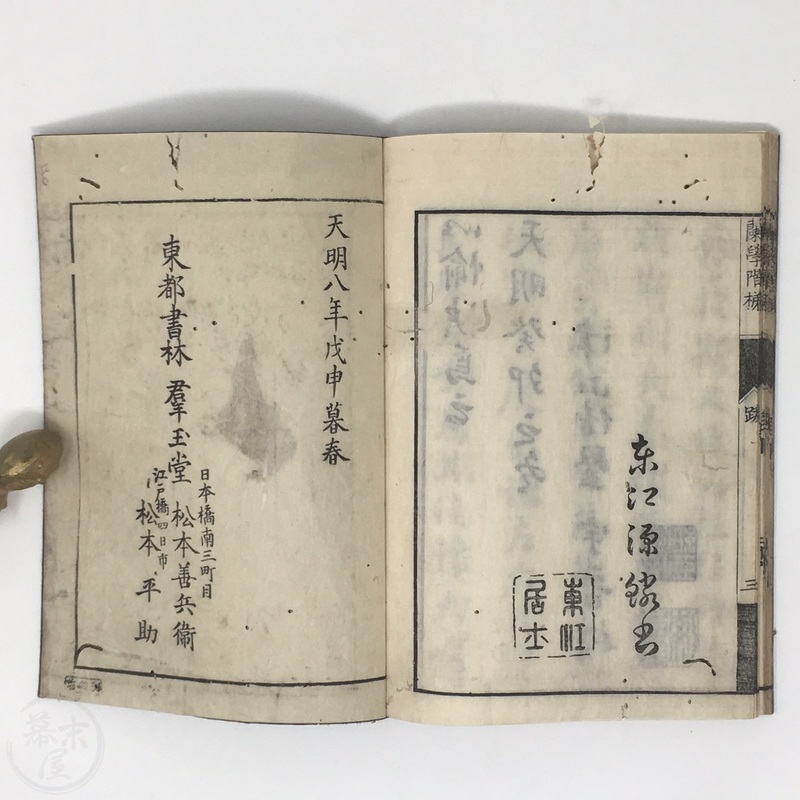 蘭學階梯
跋
三
東江源鱗書
東江
居士
天明八年戊申暮春
東都書林 羣玉堂
日本橋南三町目
松本善兵衞
江戸橋四日市
松本平助
幕末屋